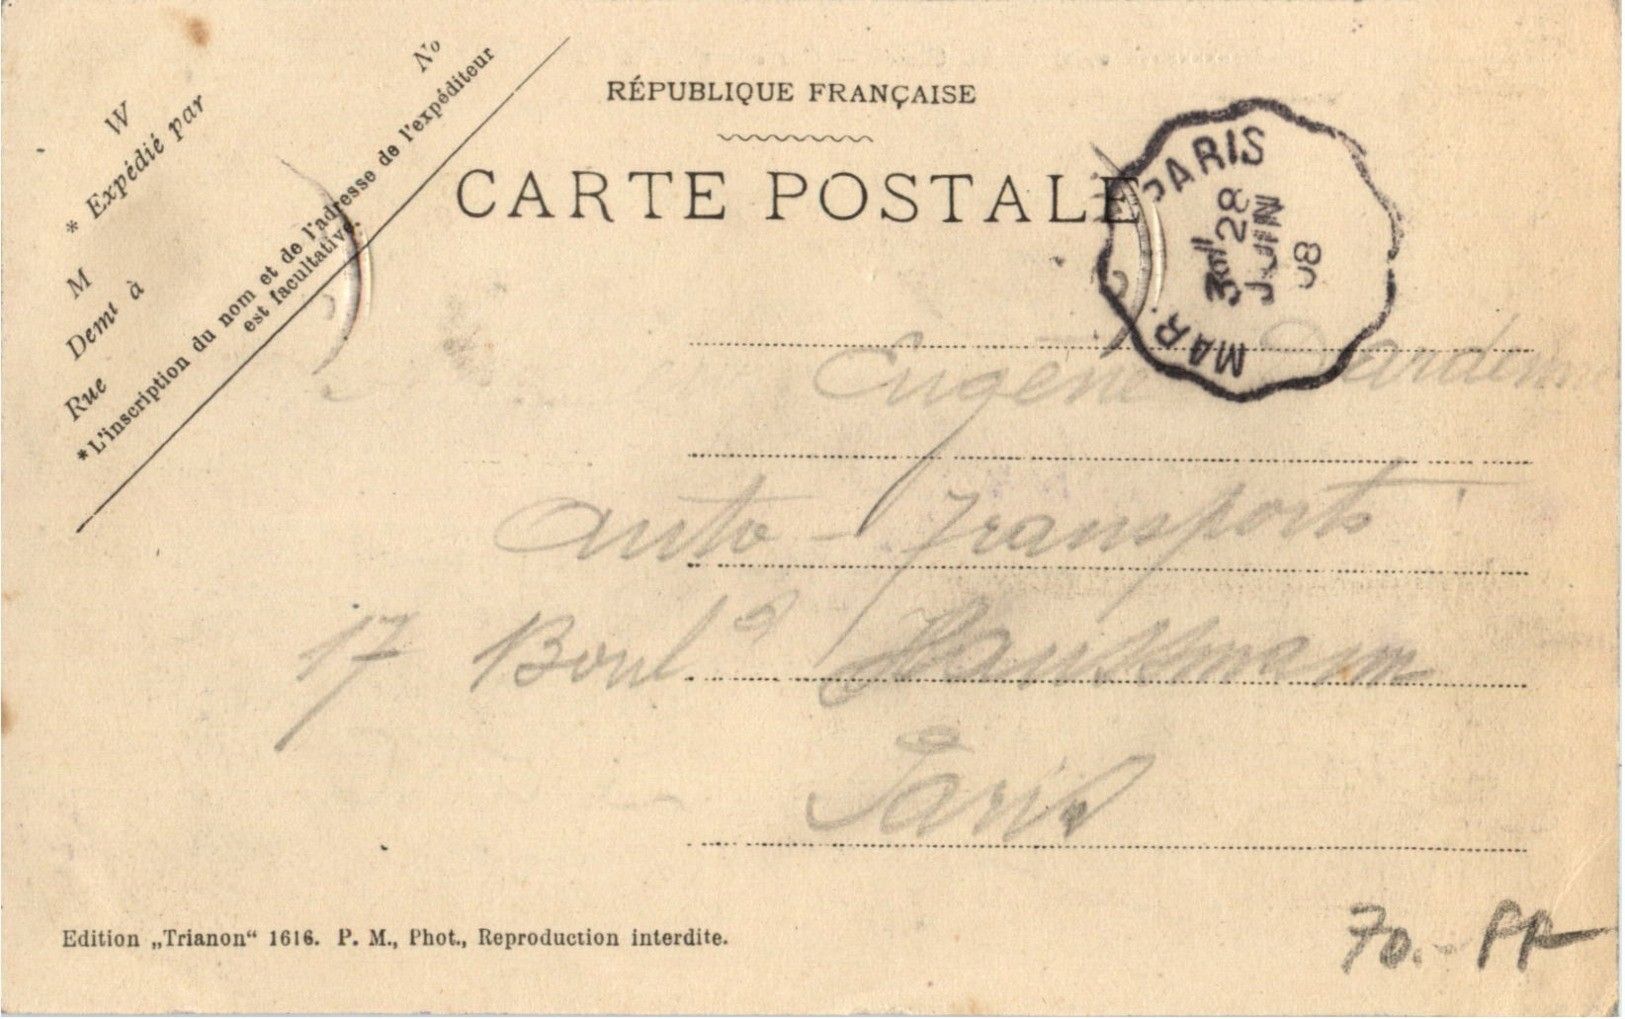 RÉPUBLIQUE FRANÇAISE
CARTE POSTALE
No
W
* Expédié par
M
Demt à
Rue
*L'inscription du nom et de l'adresse de l'expéditeur
est facultative.
PARIS
28
JUIN
08
MAR.
Eugène Dardenne
Auto-Transports
17 Bould Haussmann
Paris
Edition „Trianon“ 1616. P. M., Phot., Reproduction interdite.
70.- PP